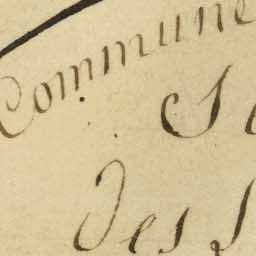 Commune
S
des S